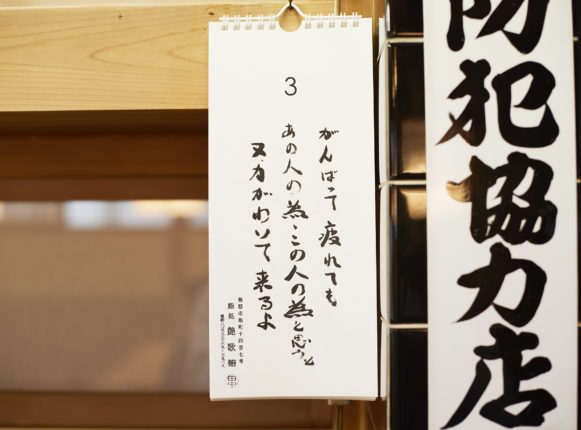 防犯協力店
3
がんばって 疲れても
あの人の為、この人の為と思うと
又、力がわいて来るよ
鮨処 艶歌鮨